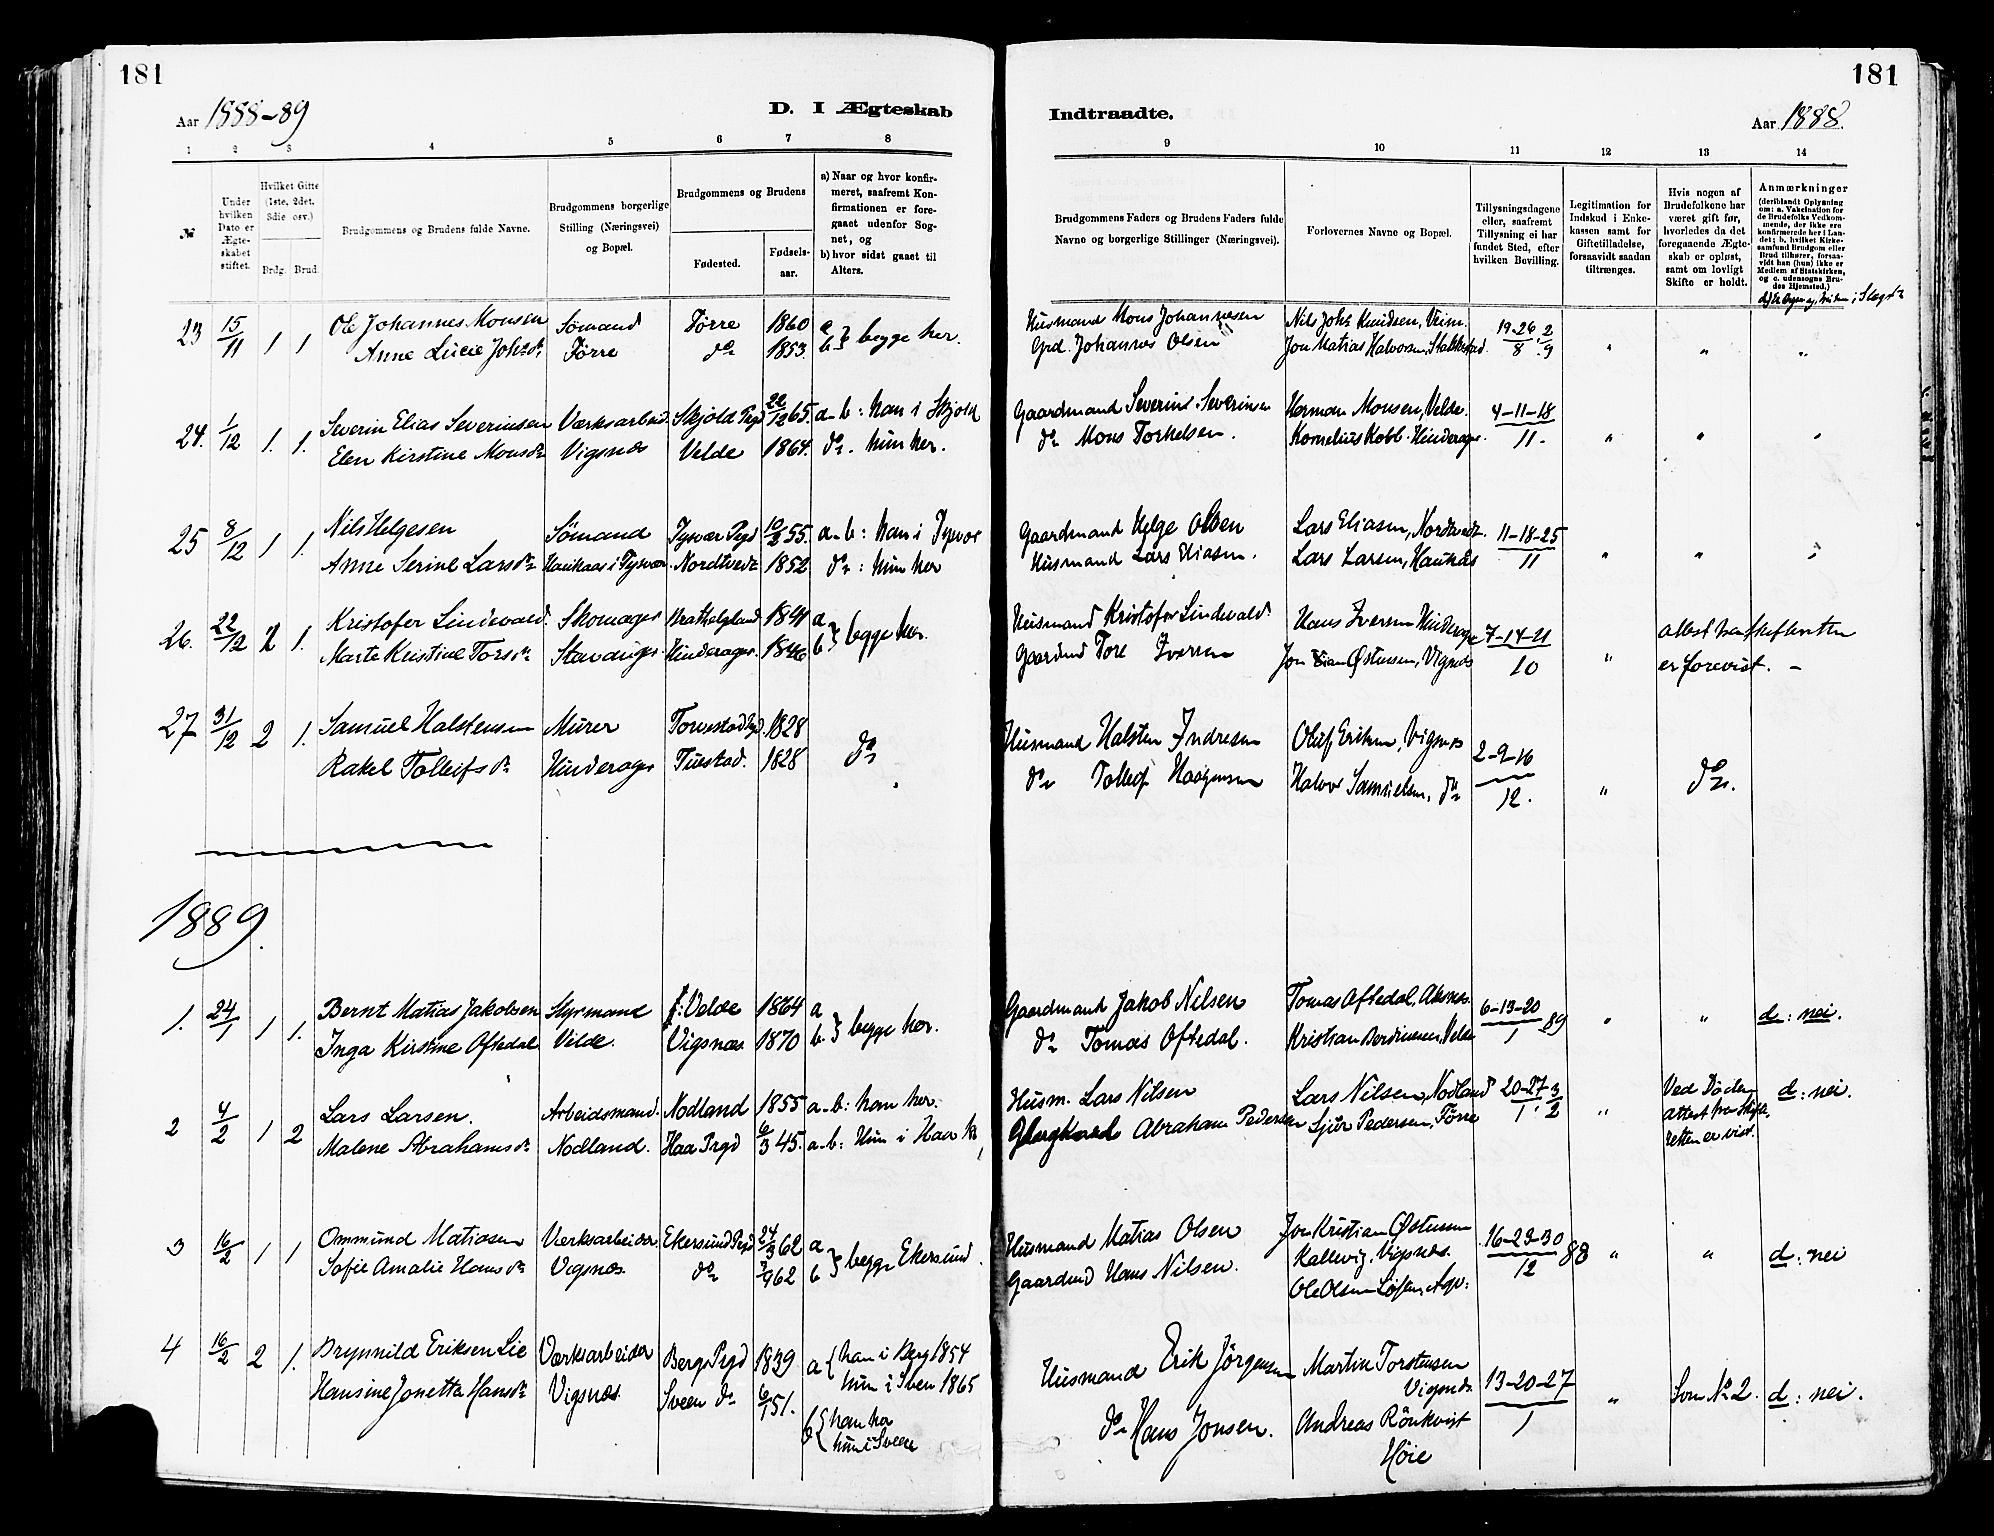 181
181
Aar 1888-89
D. I Ægteskab
Indtraadte.
Aar 1888.
1 2 3 4 5 6 7 8 9 10 11 12 13 14
№
Under hvilken Dato er Ægteskabet stiftet.
Hvilket Gifte (1ste, 2det, 3die osv.)
Brdg. Brud.
Brudgommens og Brudens fulde Navne.
Brudgommens borgerlige Stilling (Næringsvei) og Bopæl.
Brudgommens og Brudens
Fødested.
Fødselsaar.
a) Naar og hvor konfirmeret, saafremt Konfirmationen er foregaaet udenfor Sognet, og
b) hvor sidst gaaet til Alters.
Brudgommens Faders og Brudens Faders fulde Navne og borgerlige Stillinger (Næringsvei).
Forlovernes Navne og Bopæl.
Tillysningsdagene eller, saafremt Tillysning ei har fundet Sted, efter hvilken Bevilling.
Legitimation for Indskud i Enkekassen samt for Giftetilladelse, forsaavidt saadan tiltrænges.
Hvis nogen af Brudefolkene har været gift før, hvorledes da det foregaaende Ægteskab er opløst, samt om lovligt Skifte er holdt.
Anmærkninger
(deriblandt Oplysning om: a. Vakcination for de Brudefolks Vedkommende, der ikke ere konfirmerede her i Landet; b. hvilket Kirkesamfund Brudgom eller Brud tilhører, forsaavidt han (hun) ikke er Medlem af Statskirken, og c. udensogns Brudes Hjemsted.)
23 15/11 1 1 Ole Johannes Monsen Sømand Førre 1860 a } begge her. Husmand Mons Johannesen Nils Johs Knudsen, Veim. 19-26 2
Anne Lucie Johsdr Førre do 1853 b Grd. Johannes Olsen Jon Matias Halvorsen, 8 9 " " "
24. 1/12 1. 1. Severin Elias Severinsen Værksarbeid. Skjold Prgd 22/12 65. a-b: han i Skjold Gaardmand Severin Severinsen Herman Monsen, Velde. 4-11-18
Elen Kirstine Monsdr Vigsnæs Velde 1864. do. hun her. do Mons Torkelsen. Kornelius Kobb. Hinderager. 11. " " "
25 8/12 1 1. Nils Helgesen Sømand Tysvær Prgd 10/2 55. a-b: han i Tysvær Gaardmand Helge Olsen Lars Eliasen, Nordtvedt. 11-18-25
Anne Serine Larsdr Haukaas i Tysvær. Nordtvedt 1852 do: hun her Husmand Lars Eliasen. Lars Larsen, Haukås 11 " " "
26. 22/12 2 1. Kristofer Lindevald. Skomager 1841 a } begge her. Husmand Kristofer Lindevald. Hans Iversen Hinderager 7-14-21 attest fra Skifteretten
Marte Kristine Torsdr Stavanger. Hinderager. 1846 b Gaardmd Tore Iversen Jon Kian Østensen, Vigsnæs 10 " er forevist. -
27 31/12 2 1. Samuel Halstensen Murer Torvestad Prgd. 1828 Husmand Halsten Indresen Oluf Eriksen, Vigsnæs 2-9-16
Rakel Tolleifsdr Hinderager Tuestad. 1828 do do Tolleif Haagensen Halvor Samuelsen, do 12. " do.
1889.
1. 24/1 1 1. Bernt Matias Jakobsen Styrmand f: Velde 1864 a } begge her. Gaardmand Jakob Nilsen Tomas Oftedal, Aksnes. 6-13-20
Inga Kirstine Oftedal Velde. Vigsnæs 1870 b. do Tomas Oftedal. Kristian Berdinesen, Velde 1 89 " " d: nei.
2 4/2 1 2 Lars Larsen. Arbeidsmand. Nodland 1855 a-b: han her. Husm. Lars Nilsen Lars Nilsen, Nodland 20-27 3 Ved Døden d: nei.
Malene Abrahamsdr Nodland. Haa Prgd 6/3 45. a-b: Hun i Haa Abraham Pedersen Sjur Pedersen, Førre 1 2 " attest fra Skifte-
retten er vist.
3 16/2 1 1 Ommund Matiasen Værksarbeider Ekersund Prgd 24/3 62 a } begge Ekersund. Husmand Matias Olsen Jon Kristian Østensen 16-23-30
Sofie Amalie Hansdr Vigsnæs. do 62 b Gaardmd Hans Nilsen. Kallevig, Vigsnæs. 12 88 " " d: nei
Ole Olsen
4 16/2 2 1. Brynnild Eriksen Lie Værksarbeider Bergs Prgd 1839 a { han i Berg 1854 Husmand Erik Jörgensen Martin Torstensen
Hansine Jonetta Hansdr Vigsnæs. Sveen do 6/1 51. hun i Sveen 1865 Vigsnæs 13-20-27 " Som No 2. d: nei.
b { han her do Hans Jonsen. Andreas Rönkvist 1
hun i Sveen Høie